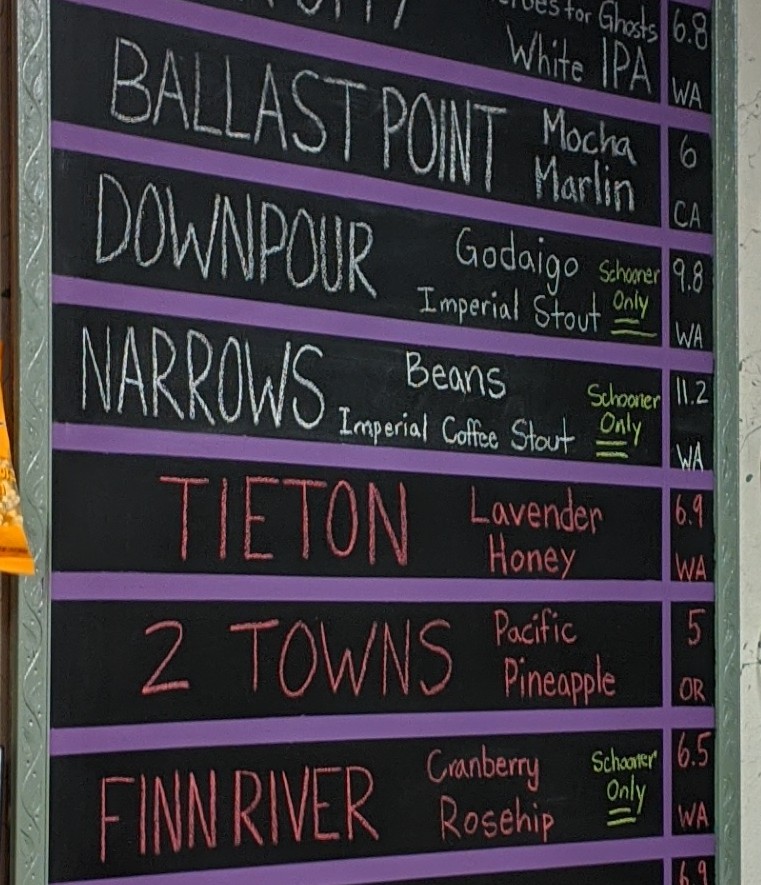 for Ghosts 6.8
White IPA WA
BALLAST POINT Mocha 6
Marlin CA
DOWNPOUR Godaigo Schooner 9.8
Imperial Stout Only WA
NARROWS Beans Schooner 11.2
Imperial Coffee Stout Only WA
TIETON Lavender 6.9
Honey WA
2 TOWNS Pacific 5
Pineapple OR
FINNRIVER Cranberry Schooner 6.5
Rosehip Only WA
6.9